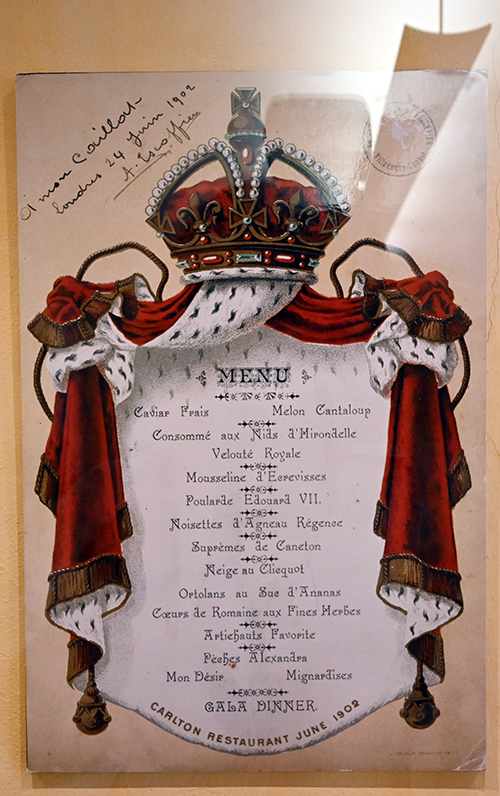 A mon Caillat
Londres 24 Juin 1902
A. Escoffier
MENU
Caviar Frais Melon Cantaloup
Consommé aux Nids d'Hirondelle
Velouté Royale
Mousseline d'Ecrevisses
Poularde Edouard VII.
Noisettes d'Agneau Régence
Suprèmes de Caneton
Neige au Clicquot
Ortolans au Suc d'Ananas
Cœurs de Romaine aux Fines Herbes
Artichauts Favorite
Pèches Alexandra
Mon Désir Mignardises
GALA DINNER.
CARLTON RESTAURANT JUNE 1902